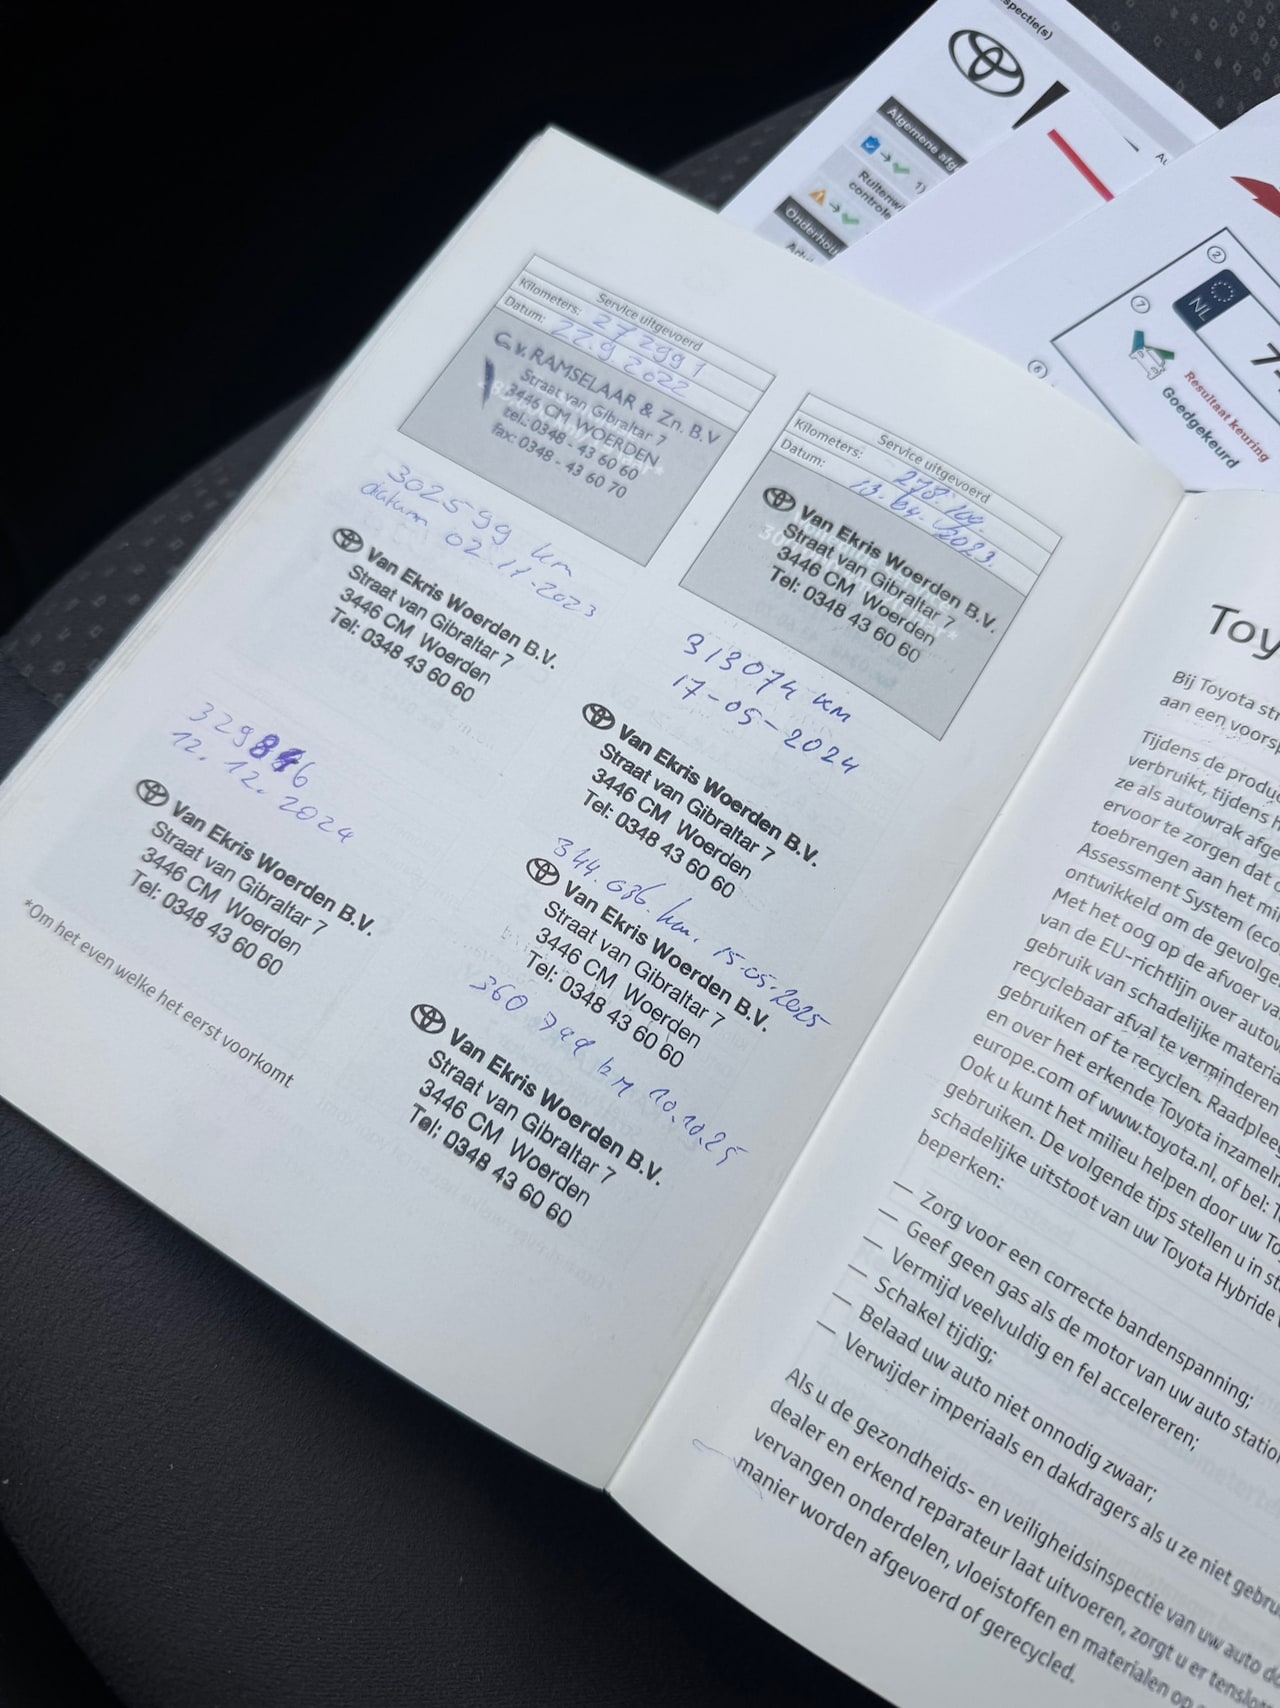 Service uitgevoerd
Kilometers: 272991
Datum: 22.9.2022
C. v. RAMSELAAR & Zn. B.V
Straat van Gibraltar 7
3446 CM WOERDEN
tel.: 0348 - 43 60 60
fax: 0348 - 43 60 70
Service uitgevoerd
Kilometers: 278.109.
Datum: 13.04.2023.
Van Ekris Woerden B.V.
Straat van Gibraltar 7
3446 CM Woerden
Tel: 0348 43 60 60
302599 km
datum 02-11-2023
Van Ekris Woerden B.V.
Straat van Gibraltar 7
3446 CM Woerden
Tel: 0348 43 60 60
313074 KM
17-05-2024
Van Ekris Woerden B.V.
Straat van Gibraltar 7
3446 CM Woerden
Tel: 0348 43 60 60
329846
12.12.2024
Van Ekris Woerden B.V.
Straat van Gibraltar 7
3446 CM Woerden
Tel: 0348 43 60 60
344.036.km. 15-05-2025
Van Ekris Woerden B.V.
Straat van Gibraltar 7
3446 CM Woerden
Tel: 0348 43 60 60
360 799 km 10.10.25
Van Ekris Woerden B.V.
Straat van Gibraltar 7
3446 CM Woerden
Tel: 0348 43 60 60
*Om het even welke het eerst voorkomt
Toy
Bij Toyota
aan een
Tijdens de
verbruikt, tijdens
ze als autowrak
ervoor te zorgen dat
toebrengen aan het
Assessment System
ontwikkeld om de
Met het oog op de afvoer
van de EU-richtlijn over
gebruik van schadelijke
recyclebaar afval te verminderen
gebruiken of te recyclen.
en over het erkende Toyota
europe.com of www.toyota.nl, of bel:
Ook u kunt het milieu helpen door uw
gebruiken. De volgende tips stellen u in
schadelijke uitstoot van uw Toyota Hybride
beperken:
— Zorg voor een correcte bandenspanning;
— Geef geen gas als de motor van uw auto
— Vermijd veelvuldig en fel accelereren;
— Schakel tijdig;
— Belaad uw auto niet onnodig zwaar;
— Verwijder imperiaals en dakdragers als u ze niet
Als u de gezondheids- en veiligheidsinspectie van uw auto
dealer en erkend reparateur laat uitvoeren, zorgt u er
vervangen onderdelen, vloeistoffen en materialen op
manier worden afgevoerd of gerecycled.
Algemene
1)
NL
2
7
6
Resultaat keuring
Goedgekeurd